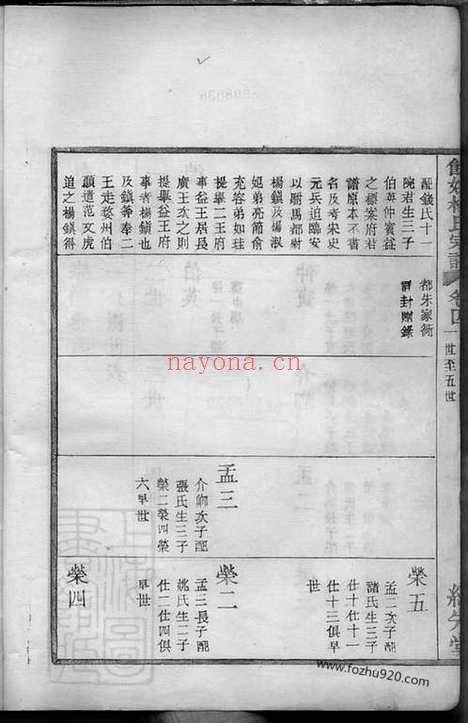 卷四
一世至五世
配錢氏十一
院君生三子
伯英仲賓益
之標案府君
譜原本不書
名及考宋史
元兵迫臨安
以駙馬都尉
楊鎮及楊淑
妃弟亮節俞
充容弟如珪
提舉二王府
事益王居長
廣王次之則
提舉益王府
事者楊鎮也
及鎮等奉二
王走婺州伯
顏遣范文虎
追之楊鎮得
都朱家衖
謂封壝錄
孟三
介嗣次子配
張氏生三子
榮二榮四榮
六早世
榮五
孟二次子配
諸氏生三子
仕十仕十一
仕十三俱早
世
榮二
孟三長子配
姚氏生二子
仕二仕四俱
早世
榮四
nayona.cn
www.fozhu920.com